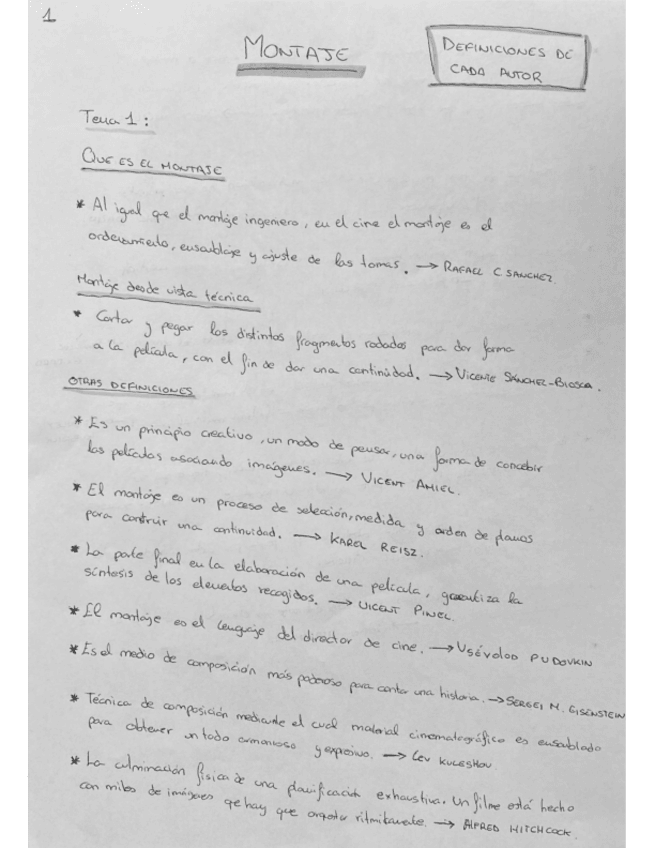 1
MONTAJE
DEFINICIONES DE
CADA AUTOR
Tema 1:
QUE ES EL MONTAJE
* Al igual qe el montaje ingeniero, en el cine el montaje es el
ordenamiento, ensamblaje y ajuste de las tomas. → RAFAEL C SANCHEZ
Montaje desde vista técnica
* Cortar y pegar los distintos fragmentos rodados para dar forma
a la película, con el fin de dar una continüdad. → VICENTE SÁNCHEZ-BIOSCA.
OTRAS DEFINICIONES
* Es un principio creativo, un modo de pensar, una forma de concebir
las películas asociando imágenes. → VICENT AMIEL.
* El montaje es un proceso de selección, medida y orden de planos
para contruir una continuidad. → KAREL REISZ.
* La parte final en la elaboración de una película, garantiza la
síntesis de los elementos recogidos. → VICENT PINEL.
* El montaje es el lenguaje del director de cine. → VSÉVOLOD PUDOVKIN
* Es el medio de composición más poderoso para contar una historia. → SERGEI M. EISENSTEIN
* Técnica de composición mediante el cual material cinematográfico es ensamblado
para obtener un todo armonioso y expresivo. → LEV KULESHOV
* La culminación física de una planificación exhaustiva. Un filme está hecho
con miles de imágenes qe hay que orqestar ritmikamente. → ALFRED HITCHCOCK.